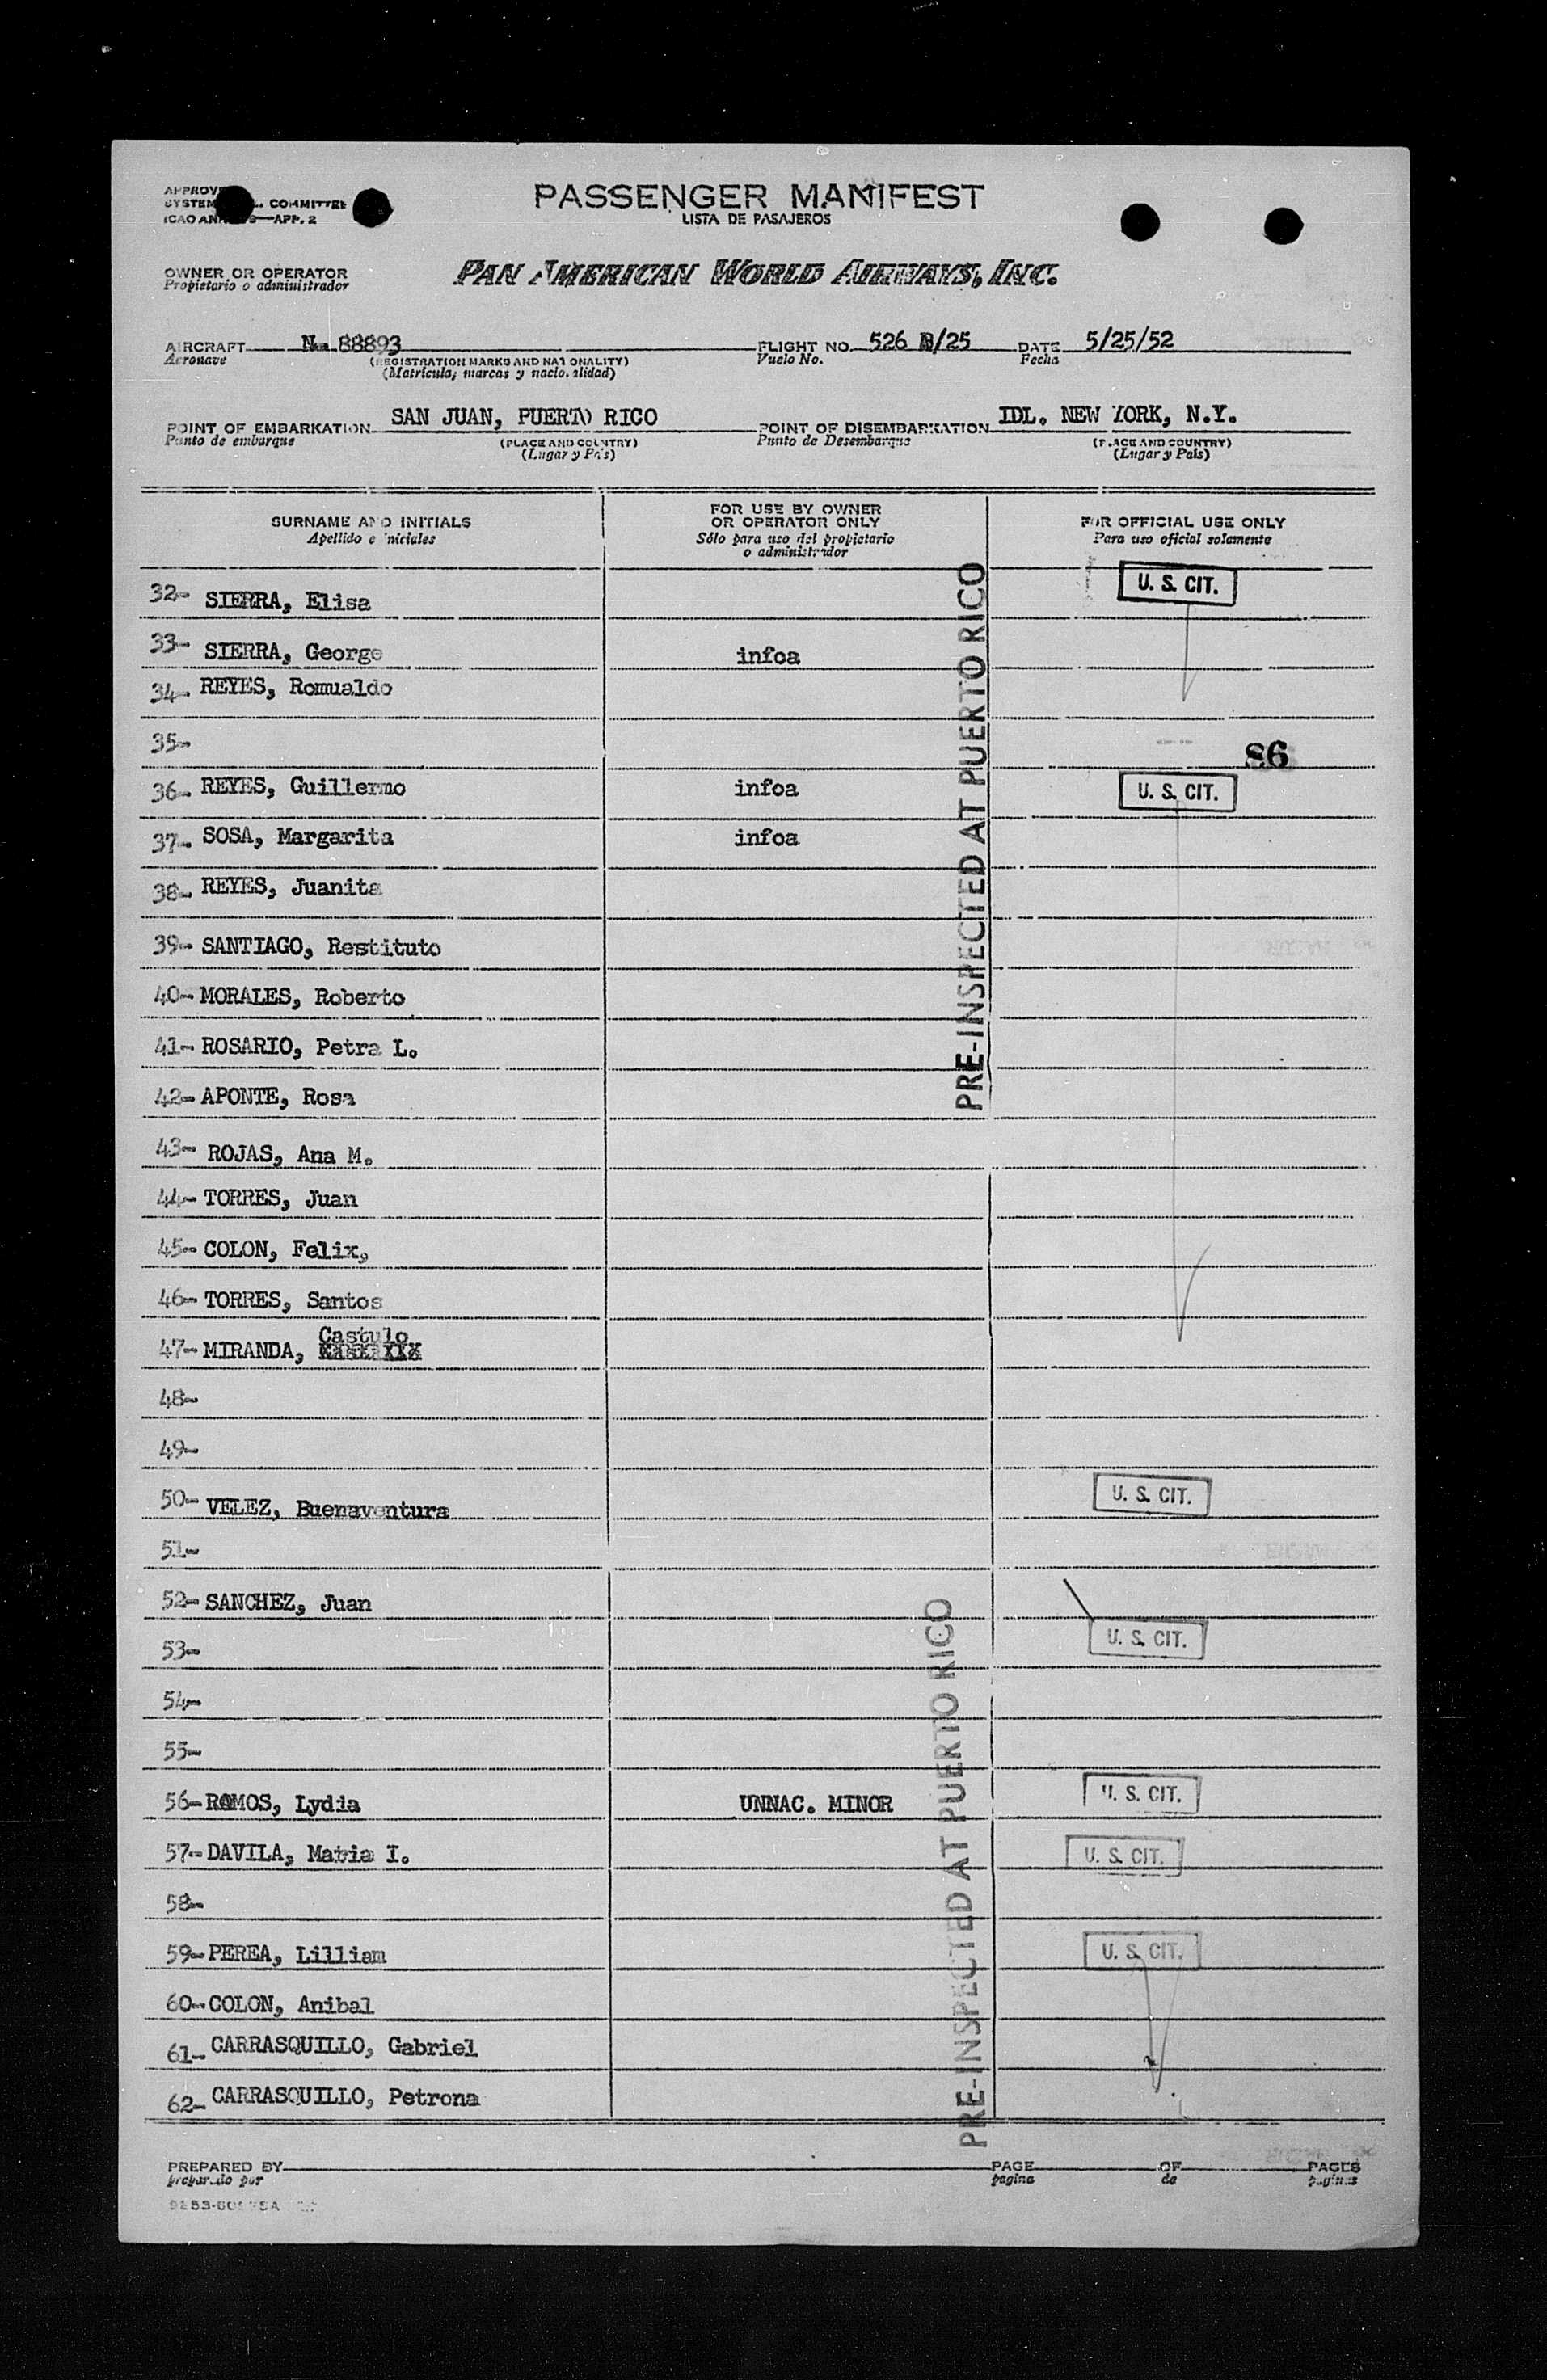 PASSENGER MANIFEST
LISTA DE PASAJEROS
COMMITTEE
APP. 2
OWNER OR OPERATOR
Propietario o administrador
PAN AMERICAN WORLD AIRWAYS, INC.
AIRCRAFT N. 88893 FLIGHT NO. 526 B/25 DATE 5/25/52
Aeronave (REGISTRATION MARKS AND NATIONALITY) Vuelo No. Fecha
(Matricula, marcas y nacionalidad)
POINT OF EMBARKATION SAN JUAN, PUERTO RICO POINT OF DISEMBARKATION IDL. NEW YORK, N.Y.
Punto de embarque (PLACE AND COUNTRY) Punto de Desembarque (PLACE AND COUNTRY)
(Lugar y País) (Lugar y País)
SURNAME AND INITIALS FOR USE BY OWNER OR OPERATOR ONLY FOR OFFICIAL USE ONLY
Apellido e iniciales Sólo para uso del propietario o administrador Para uso oficial solamente
PRE-INSPECTED AT PUERTO RICO
32- SIERRA, Elisa U. S. CIT.
33- SIERRA, George infoa
34- REYES, Romualdo
35- 86
36- REYES, Guillermo infoa U. S. CIT.
37- SOSA, Margarita infoa
38- REYES, Juanita
39- SANTIAGO, Restituto
40- MORALES, Roberto
41- ROSARIO, Petra L.
42- APONTE, Rosa
43- ROJAS, Ana M.
44- TORRES, Juan
45- COLON, Felix,
46- TORRES, Santos
47- MIRANDA, Castulo
48-
49-
50- VELEZ, Buenaventura U. S. CIT.
51-
52- SANCHEZ, Juan
53- U. S. CIT.
54-
55-
56- RAMOS, Lydia UNNAC. MINOR U. S. CIT.
57- DAVILA, Maria I. U. S. CIT.
58-
59- PEREA, Lilliam U. S. CIT.
60- COLON, Anibal
61- CARRASQUILLO, Gabriel
62- CARRASQUILLO, Petrona
PRE-INSPECTED AT PUERTO RICO
PREPARED BY PAGE OF PAGES
preparado por pagina de paginas